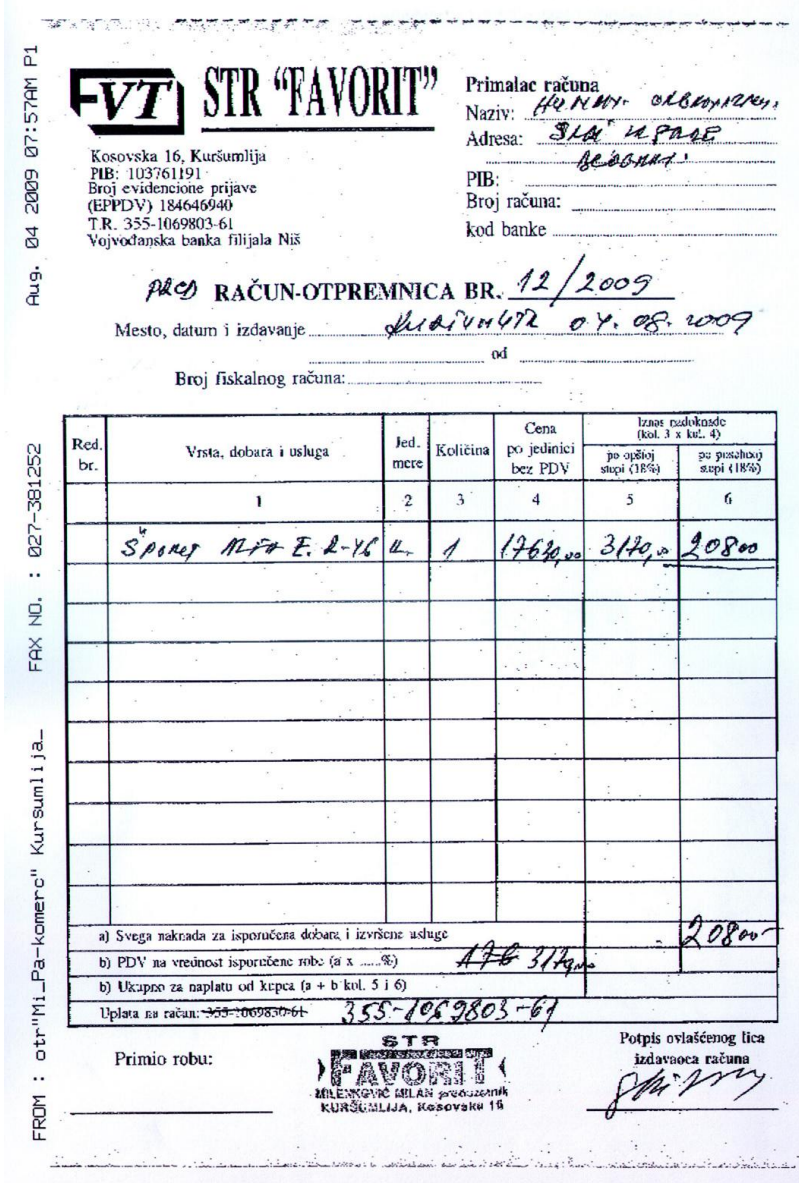 Aug. 04 2009 07:57AM P1
FAX NO. : 027-381252
FROM : otr"Mi_Pa-komerc" Kursumlija_
FVT
STR "FAVORIT"
Kosovska 16, Kuršumlija
PIB: 103761191
Broj evidencione prijave
(EPPDV) 184646940
T.R. 355-1069803-61
Vojvođanska banka filijala Niš
Primalac računa
Naziv:
Adresa:
PIB:
Broj računa:
kod banke
PRED RAČUN-OTPREMNICA BR. 12/2009
Mesto, datum i izdavanje 04. 08. 2009
od
Broj fiskalnog računa:
Red. br. Vrsta, dobara i usluga Jed. mere Količina Cena po jedinici bez PDV Iznos nadoknade (kol. 3 x kol. 4) po opštoj stopi (18%) po posebnoj stopi (18%)
1 2 3 4 5 6
Šporet 1 17630,00 3170,00 20800
a) Svega naknada za isporučena dobara i izvršene usluge 20800-
b) PDV na vrednost isporučene robe (a x ......%)
b) Ukupno za naplatu od kupca (a + b kol. 5 i 6)
Uplata na račun: 355-1069830-61 355-1069803-61
Primio robu:
STR
FAVORIT
MILENKOVIĆ MILAN preduzetnik
KURŠUMLIJA, Kosovska 16
Potpis ovlašćenog lica
izdavaoca računa